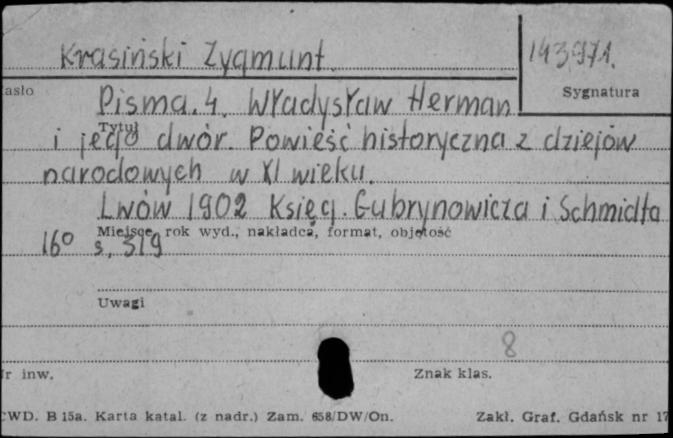 Krasiński Zygmunt. 143971.
asło Sygnatura
Pisma. 4. Władysław Herman
Tytuł
i jego dwór. Powieść historyczna z dziejów
narodowych w XI wieku.
Lwów 1902 Księg. Gubrynowicza i Schmidta
Miejsce, rok wyd., nakładca, format, objętość
16° s. 319
Uwagi
8
r inw. Znak klas.
CWD. B 15a. Karta katal. (z nadr.) Zam. 658/DW/On. Zakł. Graf. Gdańsk nr 17